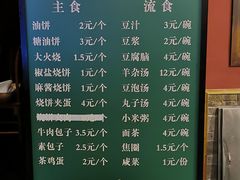 主食 流食
油饼 2元/个 豆汁 3元/碗
糖油饼 3元/个 豆浆 2元/碗
大火烧 1.5元/个 豆腐脑 4元/碗
椒盐烧饼 2元/个 羊杂汤 12元/碗
麻酱烧饼 2元/个 豆泡汤 4元/碗
烧饼夹蛋 4元/个 丸子汤 4元/碗
小米粥 3元/碗
牛肉包子 3.5元/个 面茶 4元/碗
素包子 2.5元/个 焦圈 1.5元/个
茶鸡蛋 2元/个 咸菜 1元/份